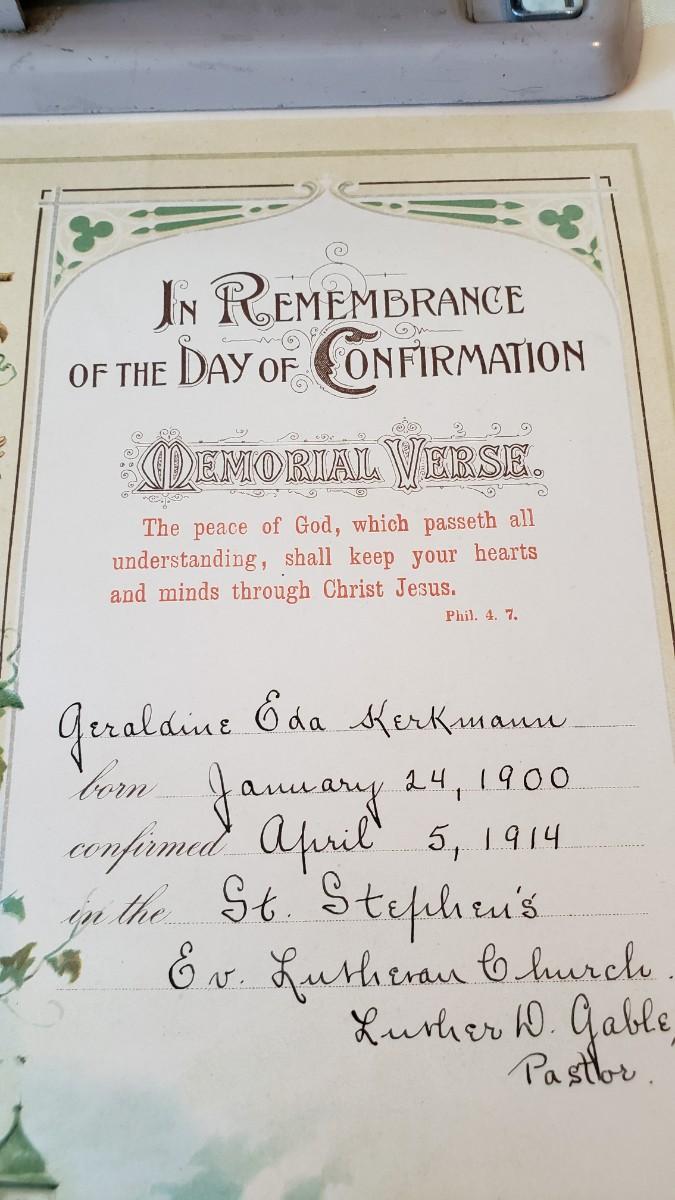 IN REMEMBRANCE
OF THE DAY OF CONFIRMATION
MEMORIAL VERSE.
The peace of God, which passeth all
understanding, shall keep your hearts
and minds through Christ Jesus.
Phil. 4. 7.
Geraldine Eda Kerkmann
born January 24, 1900
confirmed April 5, 1914
in the St. Stephen's
Ev. Lutheran Church.
Luther D. Gable,
Pastor.